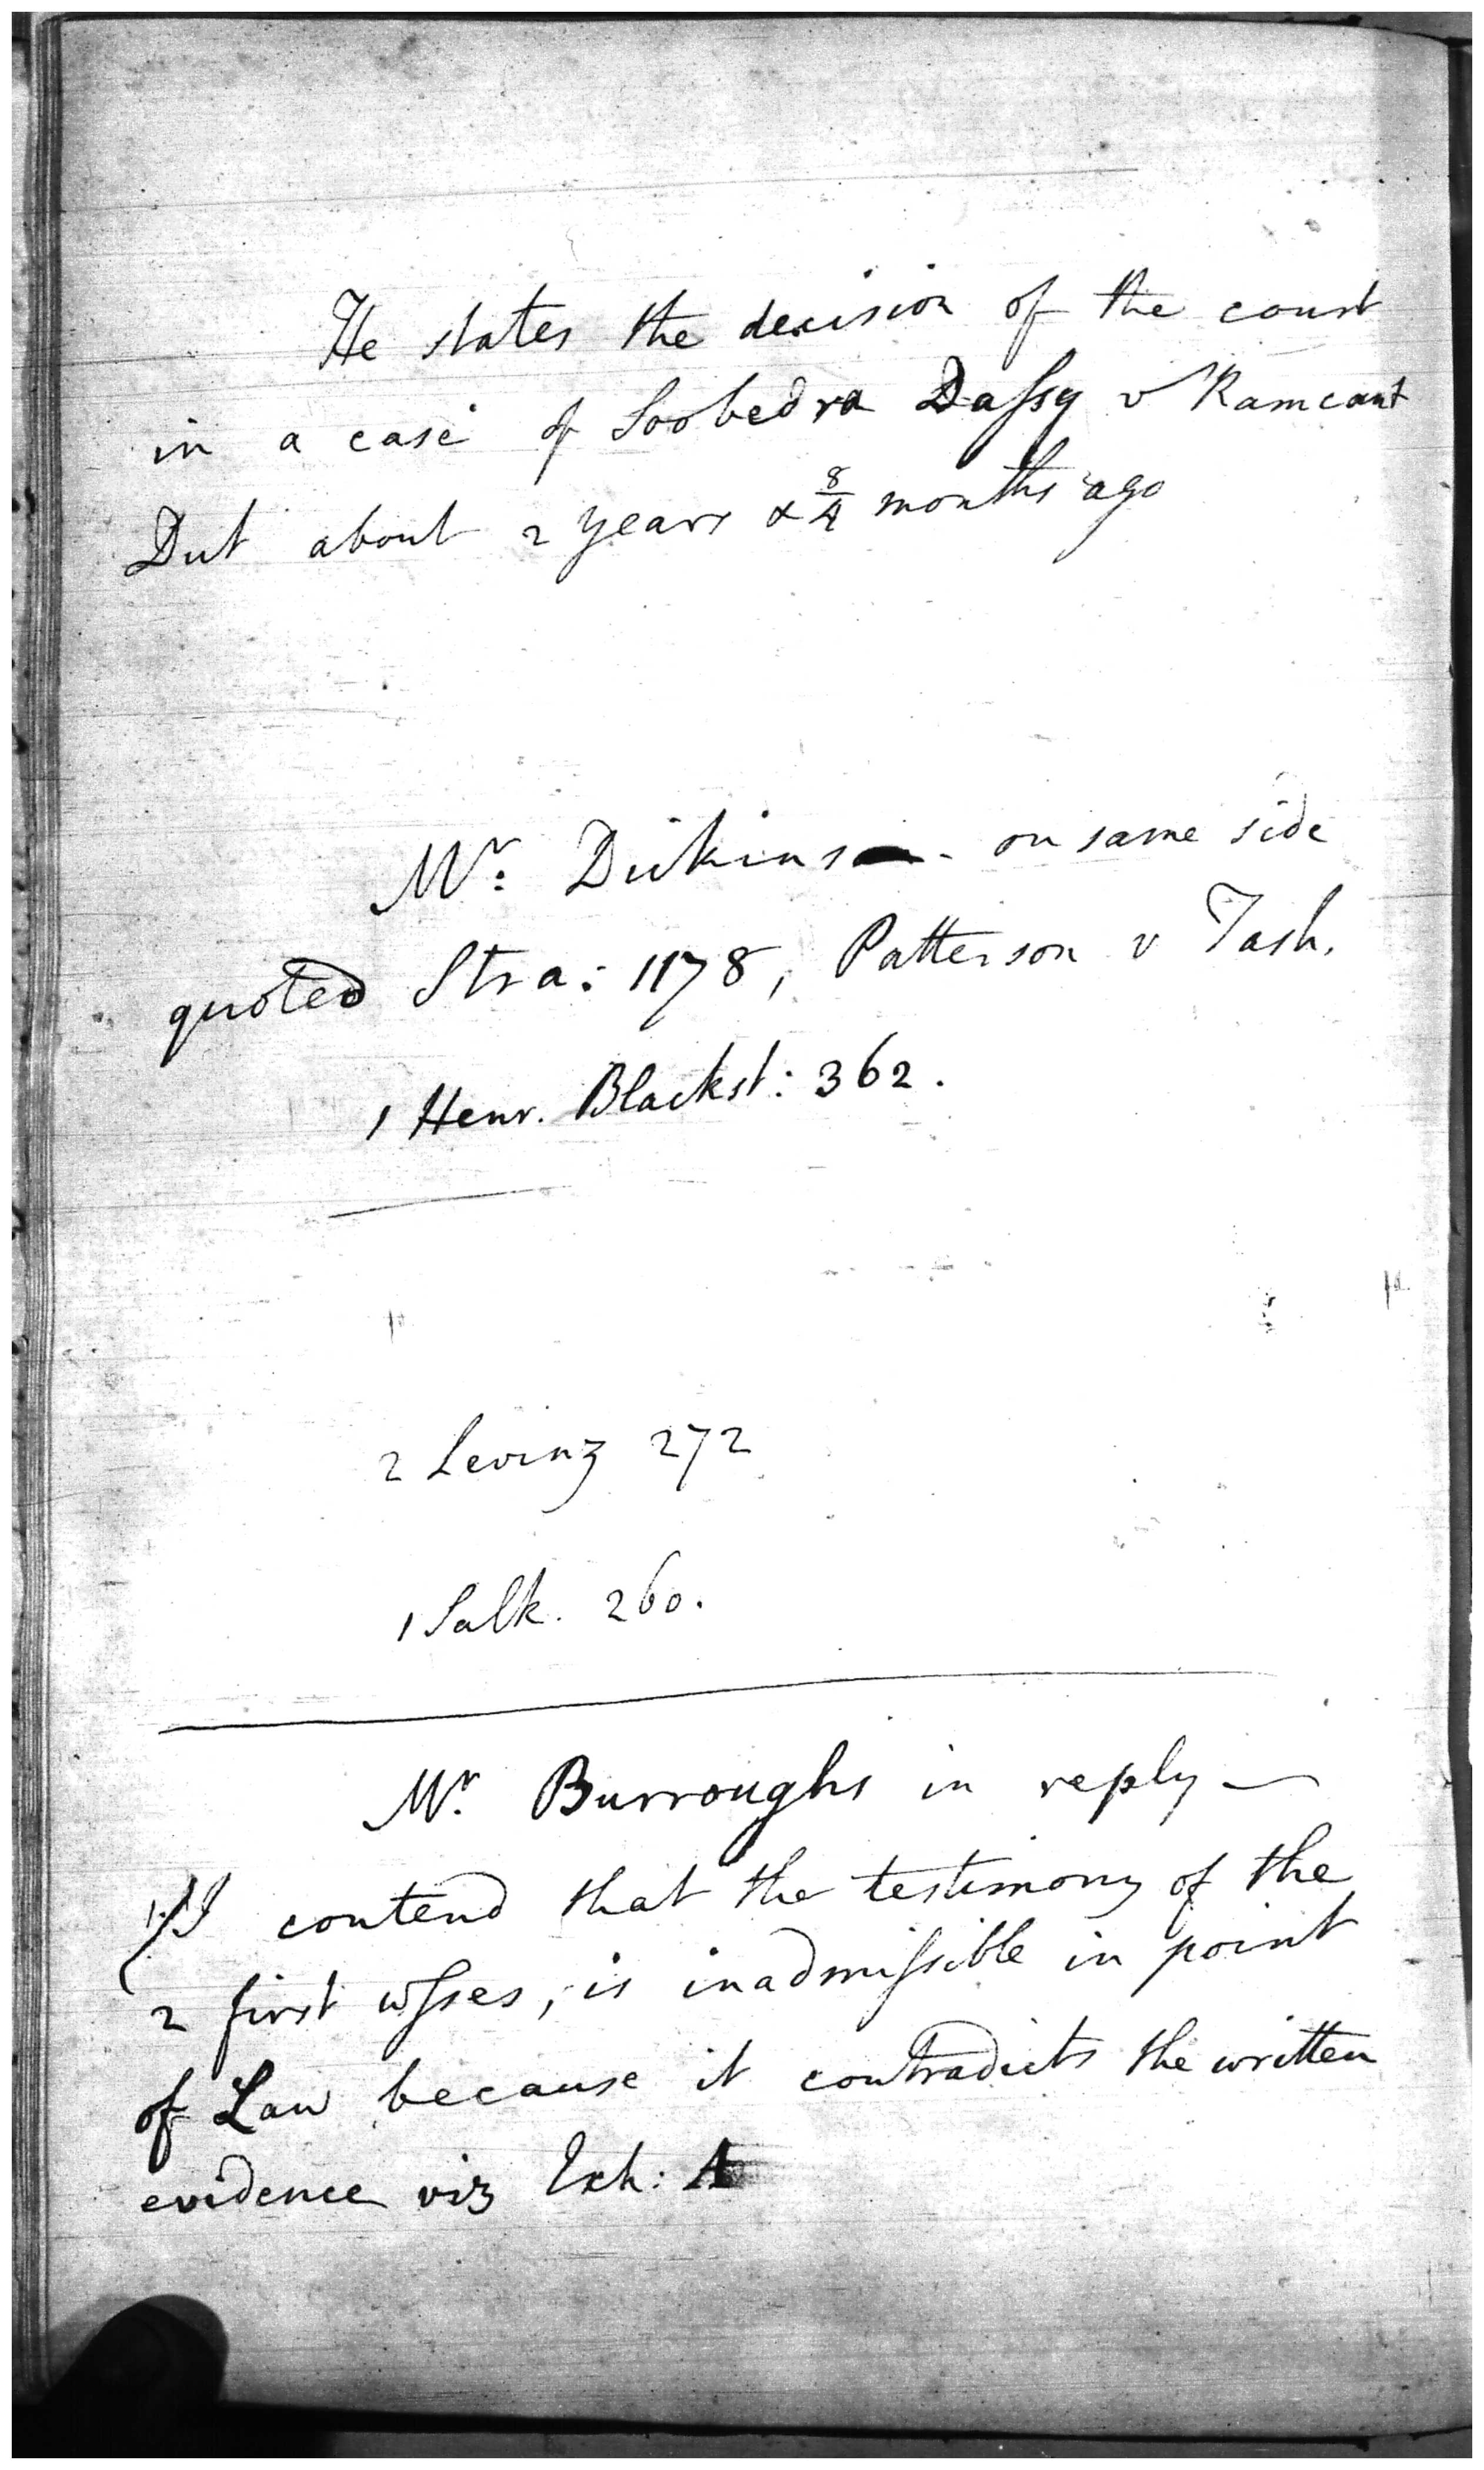 He states the decision of the court
in a case of Soobedra Daſsy v Ramcant
Dut about 2 years & 8/4 months ago
Mr: Dickins - on same side
quoted Stra: 1178, Patterson v Tash.
1 Henr. Blackst: 362.
2 Levinz 272
1 Salk. 260.
Mr. Burroughs in reply —
1. I contend that the testimony of the
2 first wſses, is inadmiſsible in point
of Law because it contradicts the written
evidence viz Exh: A